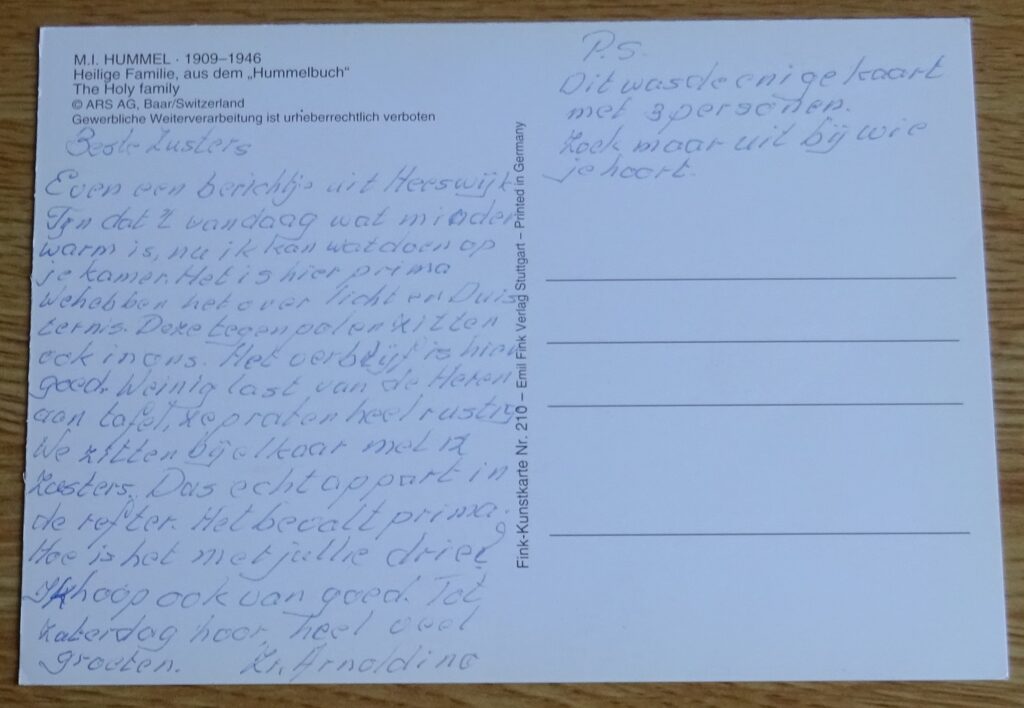 M.I. HUMMEL · 1909–1946
Heilige Familie, aus dem „Hummelbuch“
The Holy family
© ARS AG, Baar/Switzerland
Gewerbliche Weiterverarbeitung ist urheberrechtlich verboten
Beste Zusters
Even een berichtje uit Heeswijk
Fijn dat 't vandaag wat minder
warm is, nu ik kan wat doen op
je kamer. Het is hier prima
We hebben het over licht en Duis
ternis. Deze tegenpolen zitten
ook in ons. Het verblijf is hier
goed. Weinig last van de Heren
aan tafel, ze praten heel rustig
We zitten bij elkaar met 12
Zusters. Das echt appart in
de refter. Het bevalt prima.
Hoe is het met jullie drie?
Ik hoop ook van goed. Tot
zaterdag hoor, heel veel
groeten. Zr. Arnoldine
Fink-Kunstkarte Nr. 210 – Emil Fink Verlag Stuttgart – Printed in Germany
P.S.
Dit was de enige kaart
met 3 personen.
Zoek maar uit bij wie
je hoort.